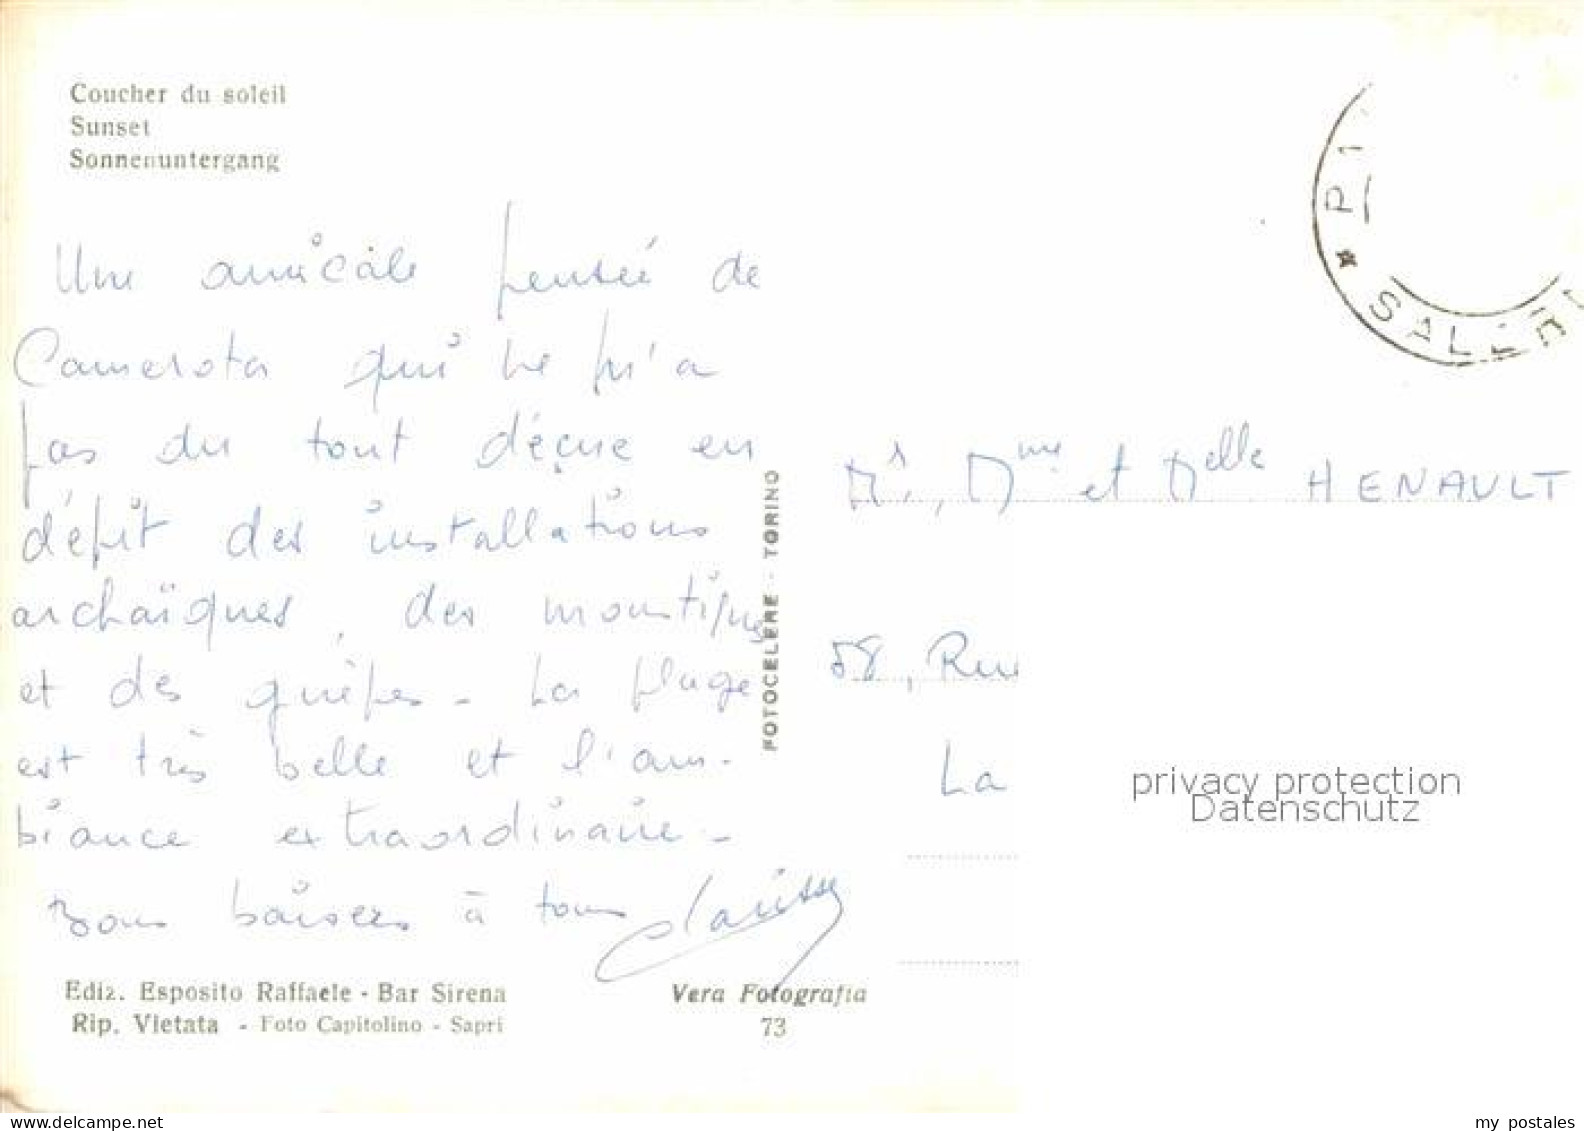 Coucher du soleil
Sunset
Sonnenuntergang
Une amicale pensée de
Camerota qui ne m'a
pas du tout déçue en
dépit des installations
archaïques, des moustiques
et des guêpes - La plage
est très belle et l'am-
biance extraordinaire -
Bons baisers à tous Clarisse
Ediz. Esposito Raffaele - Bar Sirena
Rip. Vietata - Foto Capitolino - Sapri
Vera Fotografia
73
FOTOCELERE - TORINO
★ SALER
Mr, Mme et Melle HENAULT
58, Rue
La
privacy protection
Datenschutz
delcampe.net
my postales